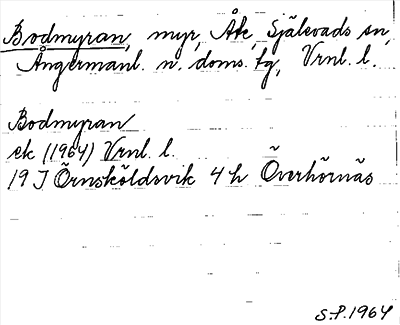 Bodmyran, myr, Åk, Själevads sn,
Ångermanl. n. doms. tg, Vrnl. l.
Bodmyran
ek (1964) Vrnl. l.
19 J Örnsköldsvik 4 h Överhörnäs
S.P. 1964